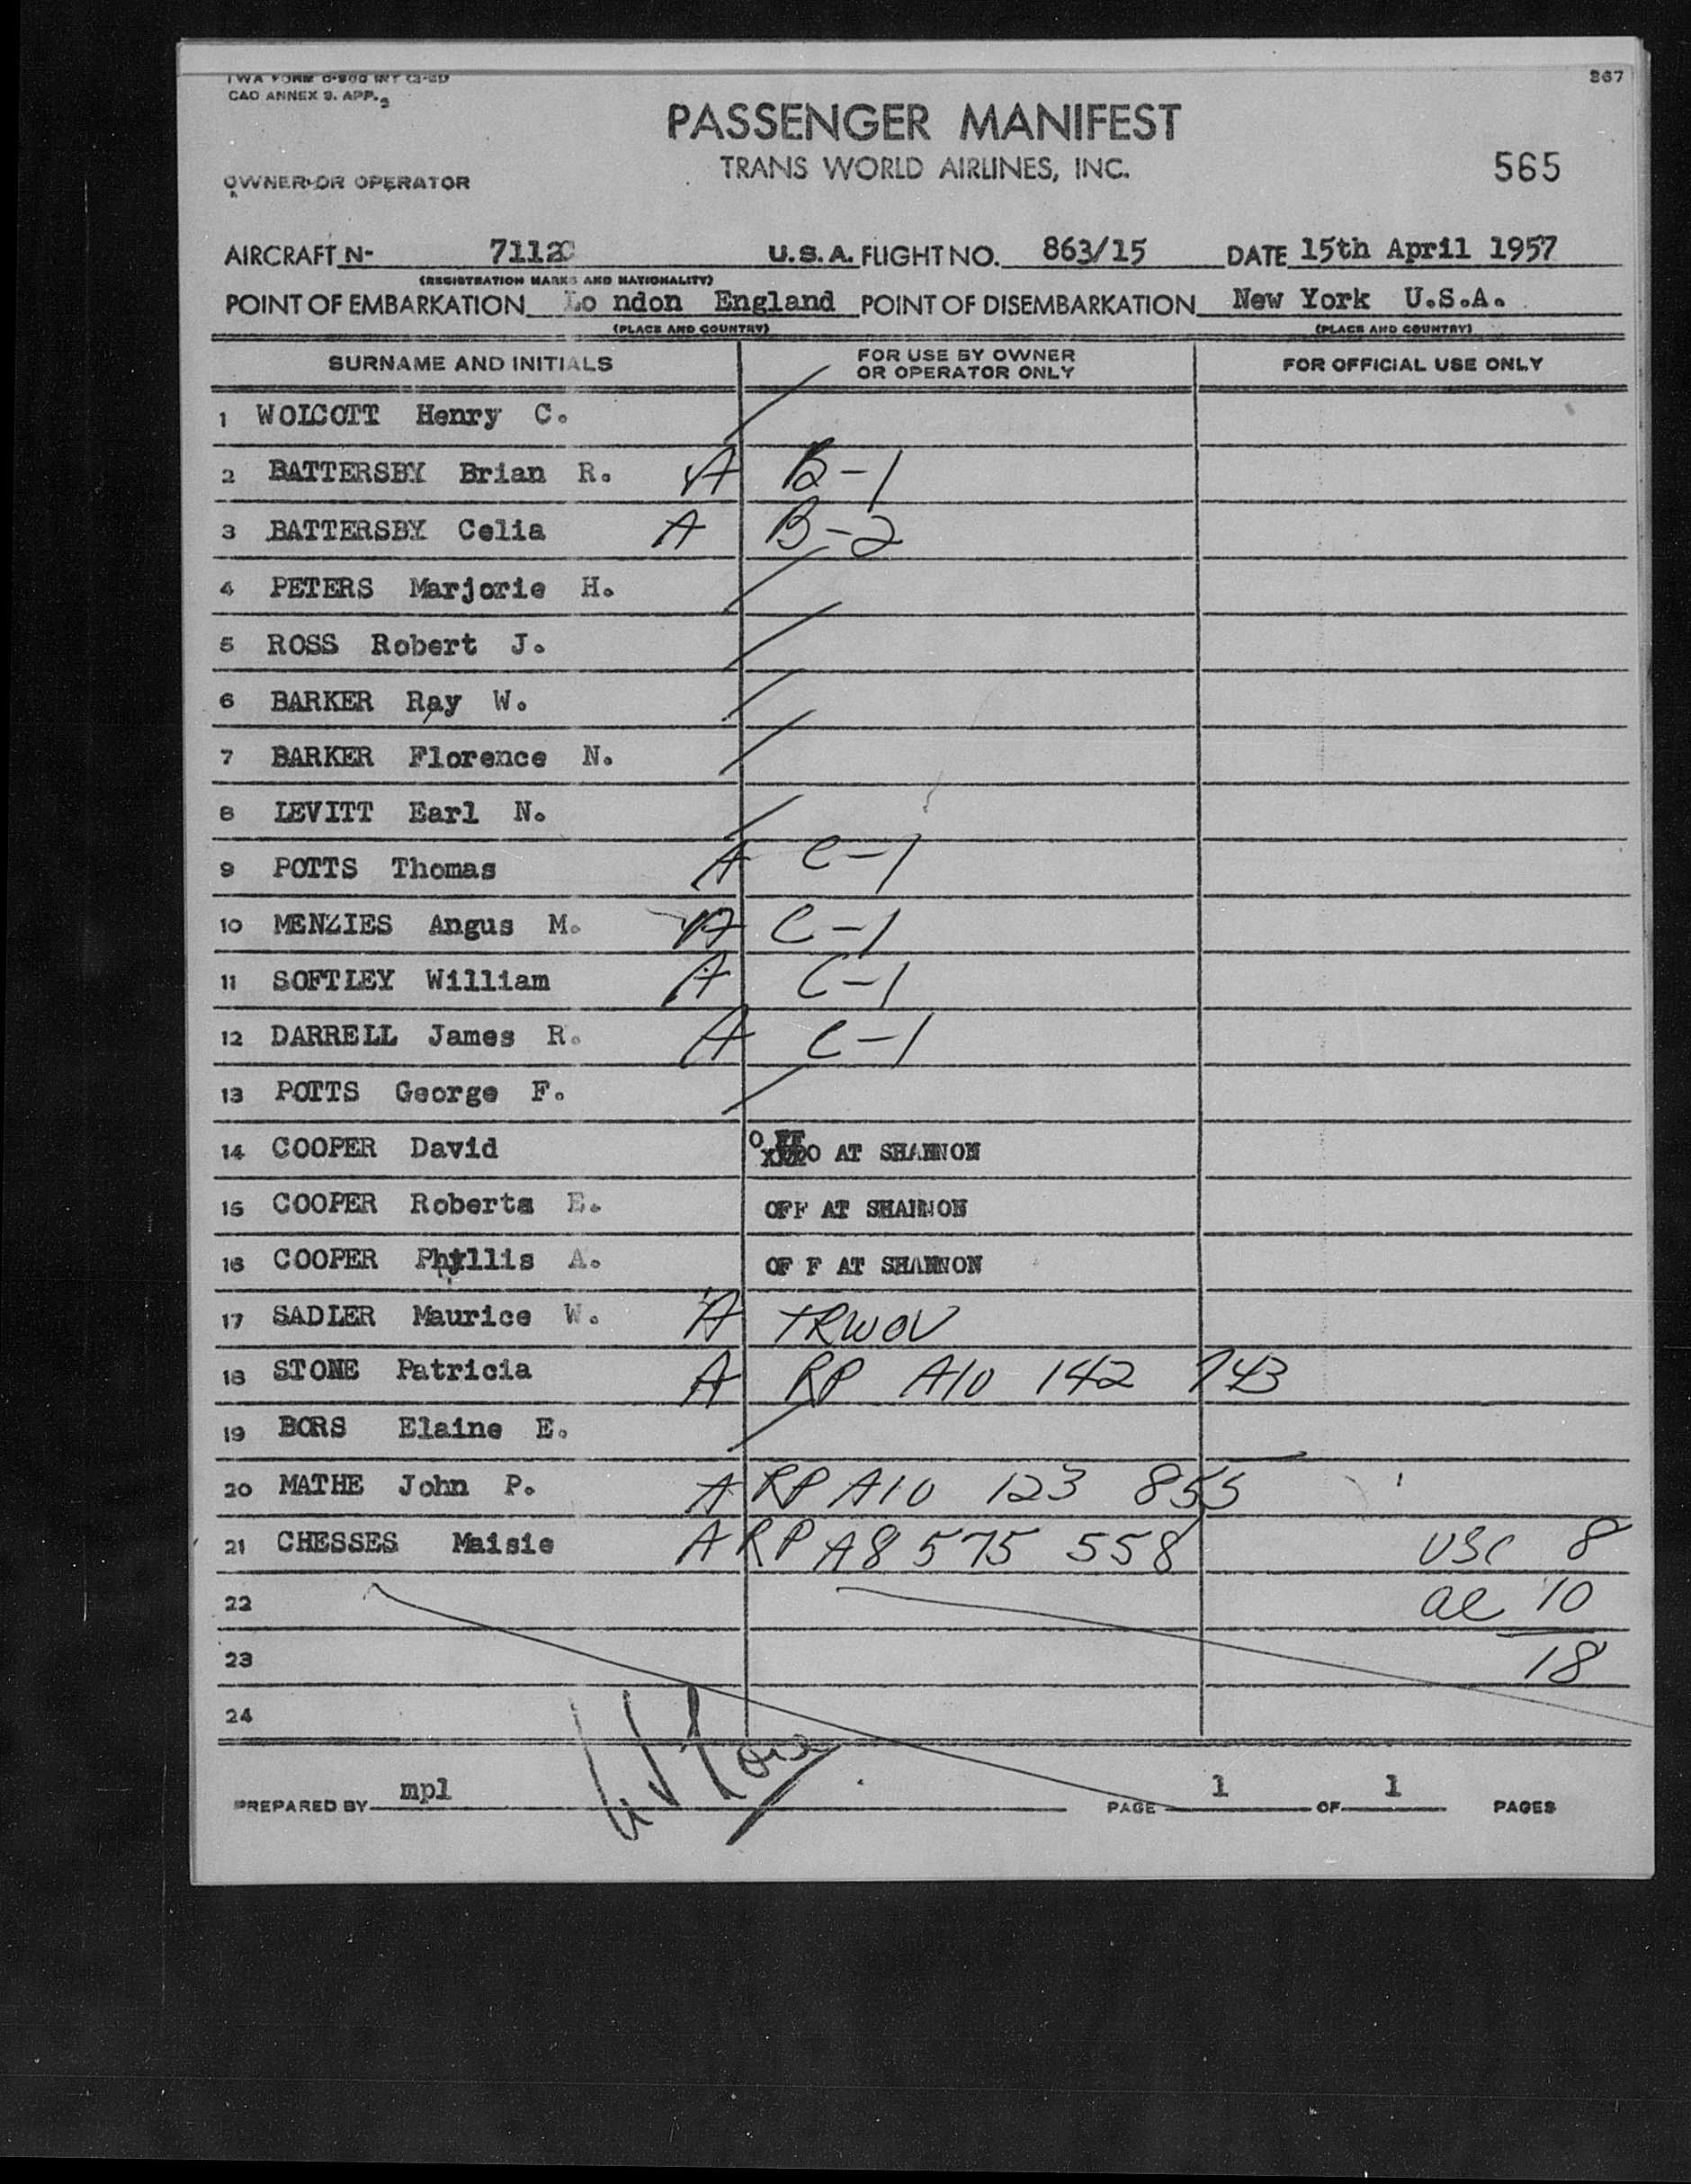 TWA FORM
CAO ANNEX 9. APP. 2
367
PASSENGER MANIFEST
TRANS WORLD AIRLINES, INC.
565
OWNER OR OPERATOR
AIRCRAFT N- 7112C U.S.A. FLIGHT NO. 863/15 DATE 15th April 1957
(REGISTRATION MARKS AND NATIONALITY)
POINT OF EMBARKATION Lo ndon England POINT OF DISEMBARKATION New York U.S.A.
(PLACE AND COUNTRY) (PLACE AND COUNTRY)
SURNAME AND INITIALS FOR USE BY OWNER OR OPERATOR ONLY FOR OFFICIAL USE ONLY
1 WOLCOTT Henry C.
2 BATTERSBY Brian R. A B-1
3 BATTERSBY Celia A B-2
4 PETERS Marjorie H.
5 ROSS Robert J.
6 BARKER Ray W.
7 BARKER Florence N.
8 LEVITT Earl N.
9 POTTS Thomas A C-1
10 MENZIES Angus M. A C-1
11 SOFTLEY William A C-1
12 DARRELL James R. A C-1
13 POTTS George F.
14 COOPER David AT SHANNON
15 COOPER Roberta E. OFF AT SHANNON
16 COOPER Phyllis A. OF F AT SHANNON
17 SADLER Maurice W. A TRWOV
18 STONE Patricia A RP A10 142 743
19 BORS Elaine E.
20 MATHE John P. A RP A10 123 855
21 CHESSES Maisie A RP A8 575 558 USC 8
22 al 10
23 18
24
PREPARED BY mpl PAGE 1 OF 1 PAGES